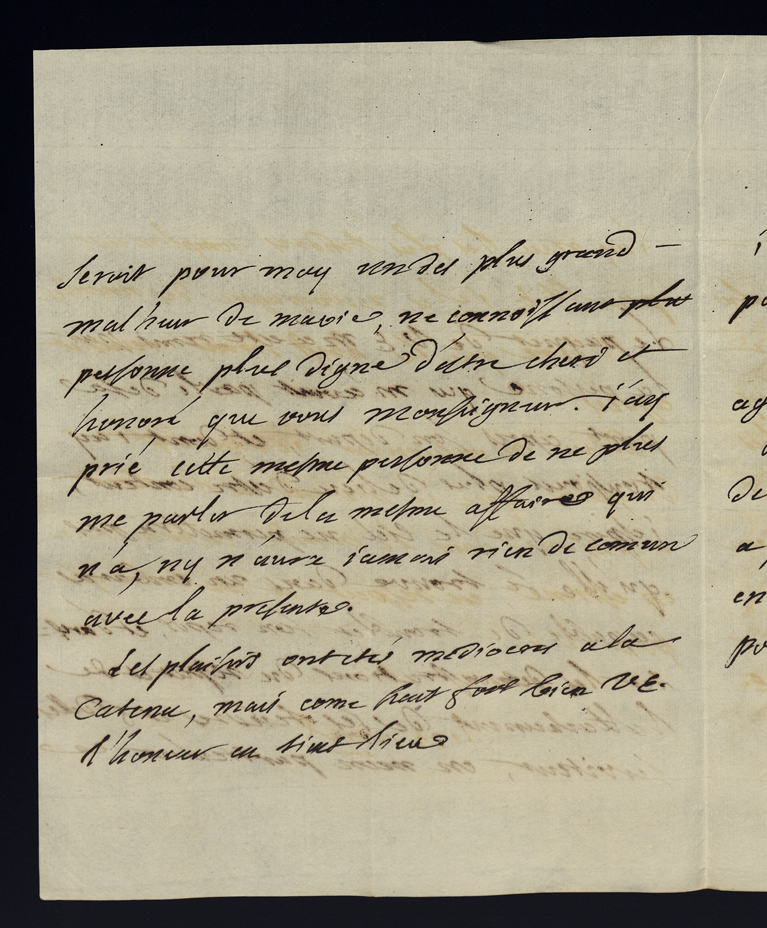 seroit pour moy un des plus grand
malheur de ma vie, ne connoissant plus
personne plus digne d'estre cheri et
honoré que vous monseigneur. j'ay
prié cette mesme personne de ne plus
me parler de la mesme affaire qui
n'a, ny n'aura iamais rien de comun
avec la presente.
Les plaisirs ont etés mediocres a la
Catena, mais come sçait fort bien V.E.
l'honeur en tient lieu